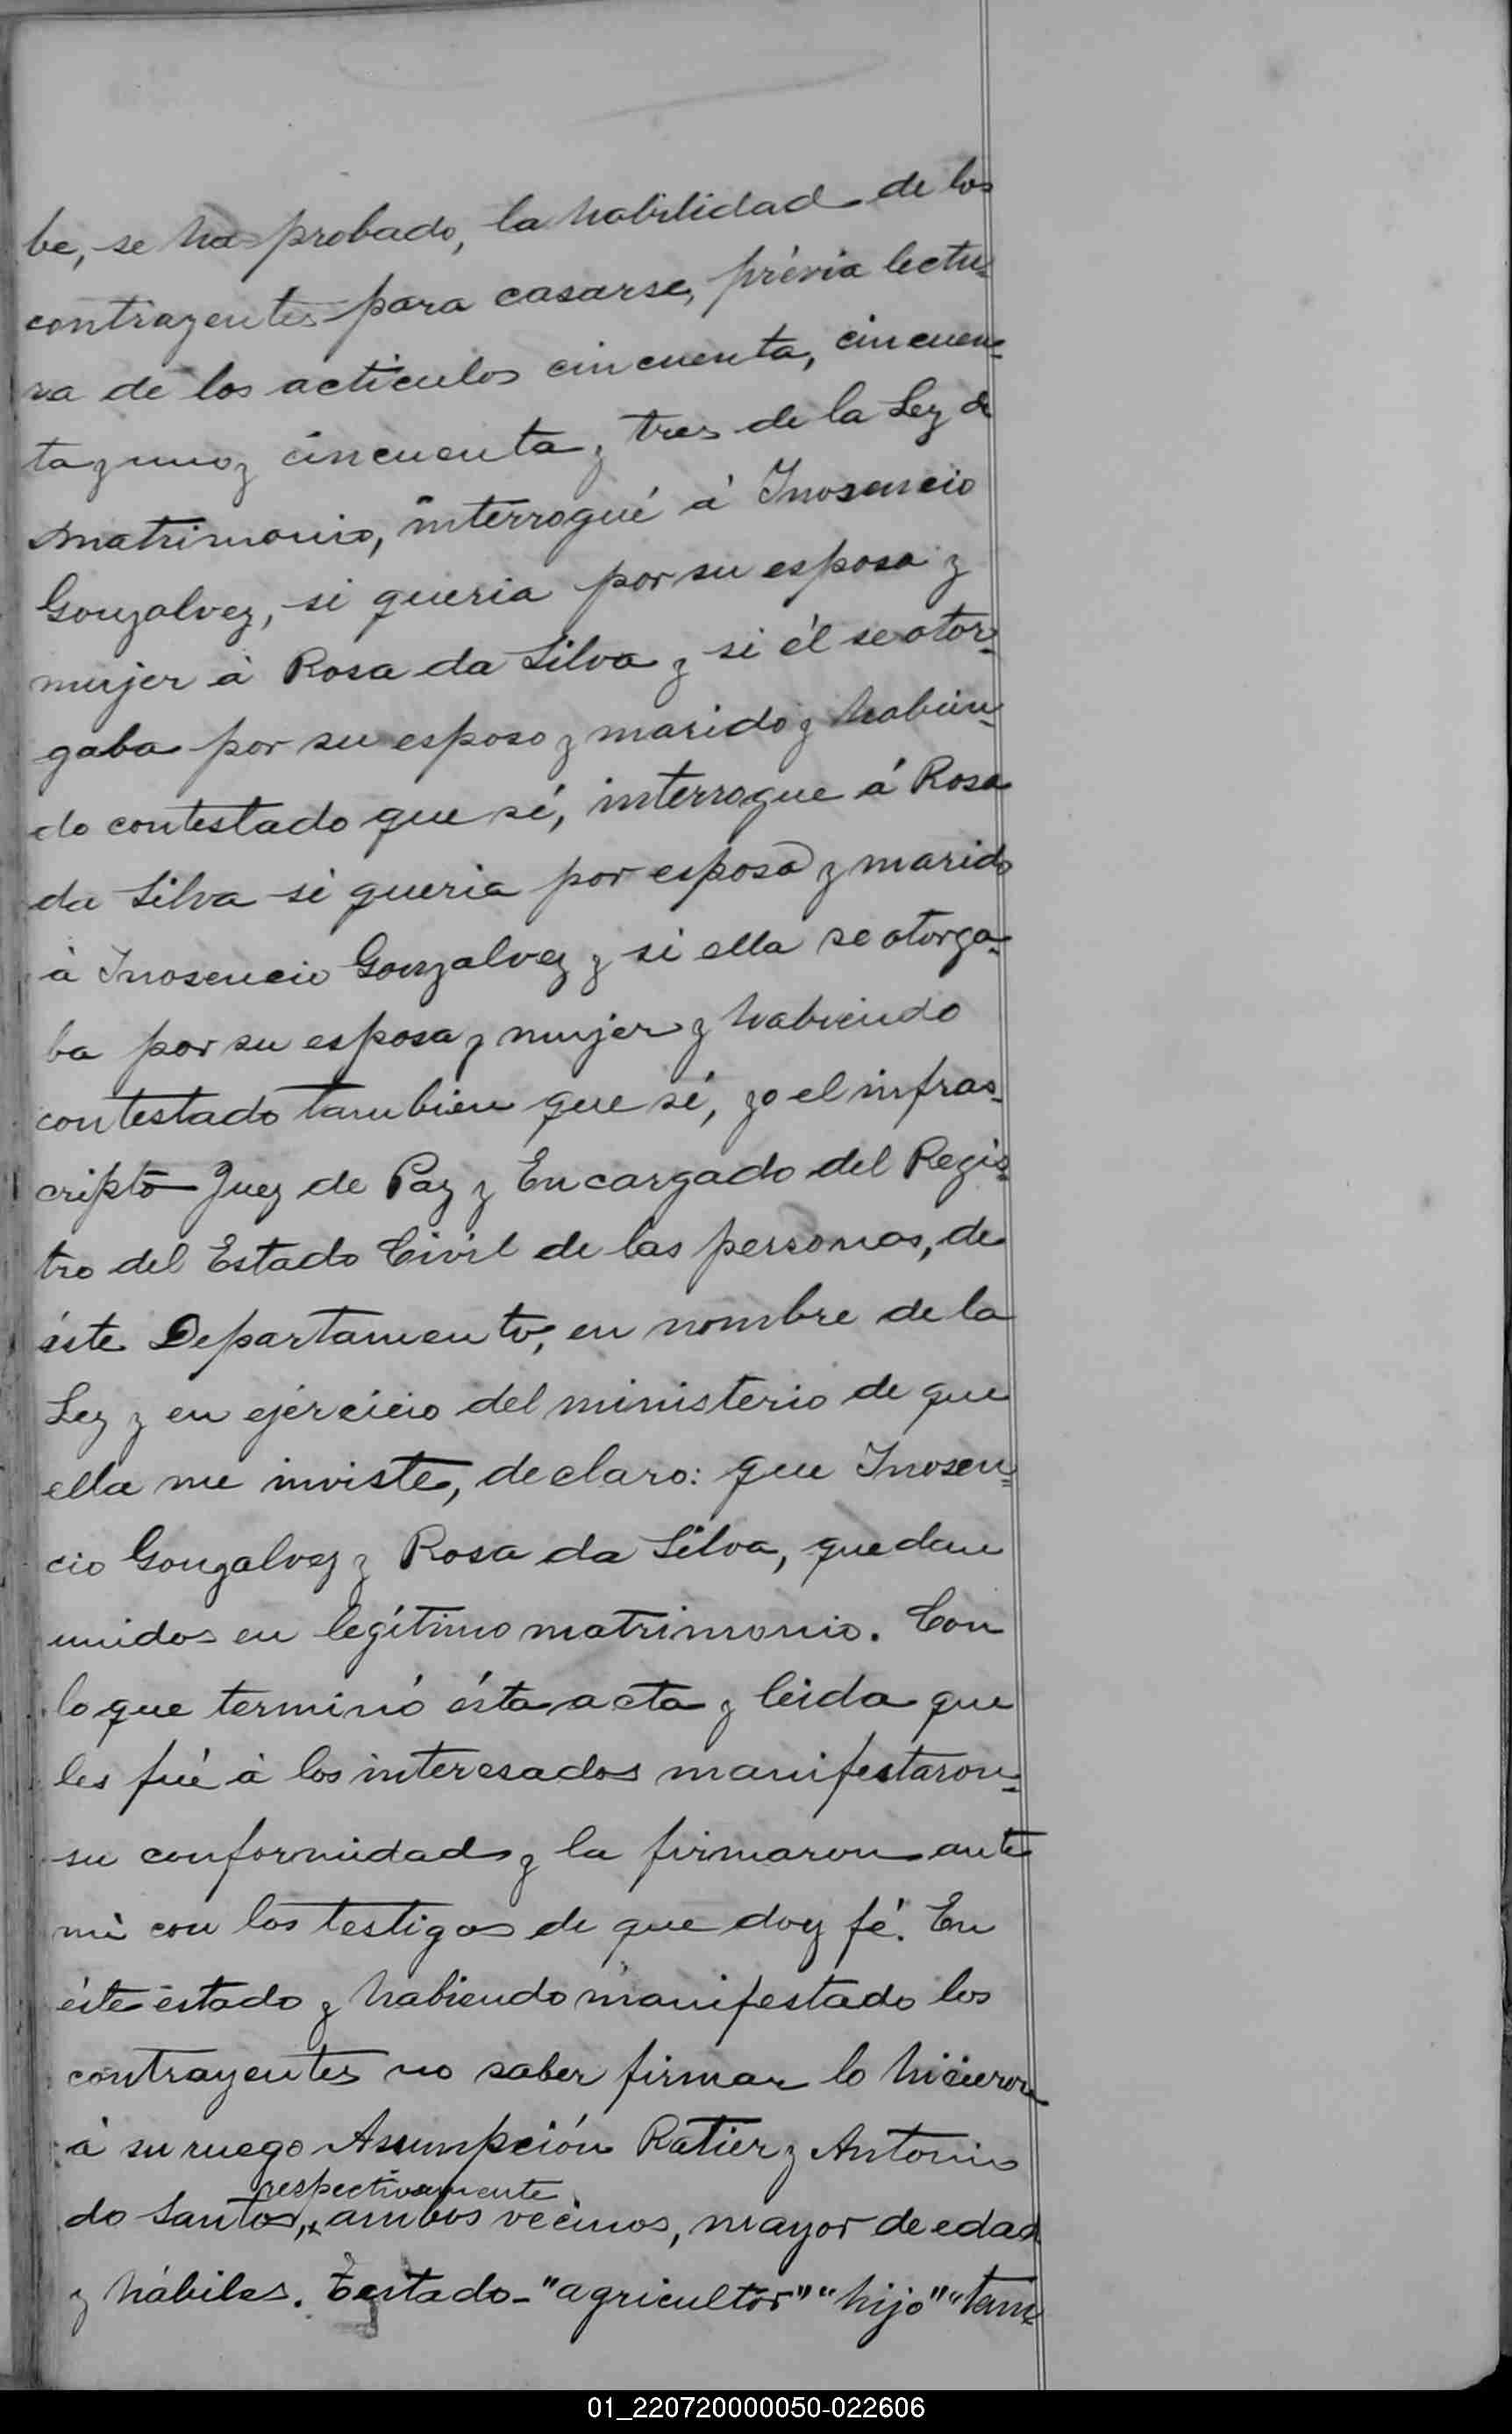 be, se ha probado, la habilidad de los
contrayentes para casarse, prévia lectu-
ra de los acticulos cincuenta, cincuen-
ta y uno y cincuenta y tres de la Ley de
matrimonio, interrogué á Inosencio
Gonzalvez, si queria por su esposa y
mujer á Rosa da Silva y si él se otor-
gaba por su esposo y marido y habien-
do contestado que sí, interrogue á Rosa
da Silva si queria por esposo y marido
á Inosencio Gonzalvez y si ella se otorga-
ba por su esposa y mujer y habiendo
contestado tambien que sí, yo el infras-
cripto Juez de Paz y Encargado del Regis-
tro del Estado Civil de las personas, de
éste Departamento, en nombre de la
Ley y en ejercicio del ministerio de que
ella me inviste, declaro: que Inosen=
cio Gonzalvez y Rosa da Silva, quedan
unidos en legítimo matrimonio. Con
lo que terminó ésta acta y leida que
les fué á los interesados manifestaron=
su conformidad y la firmaron ante
mí con los testigos de que doy fé. En
éste estado y habiendo manifestado los
contrayentes no saber firmar lo hicieron
á su ruego Asumpción Ratier y Antonio
respectivamente
do Santos, ambos vecinos, mayor de edad
y hábiles. Testado - "agricultor" "hijo" "tam-
01_220720000050-022606